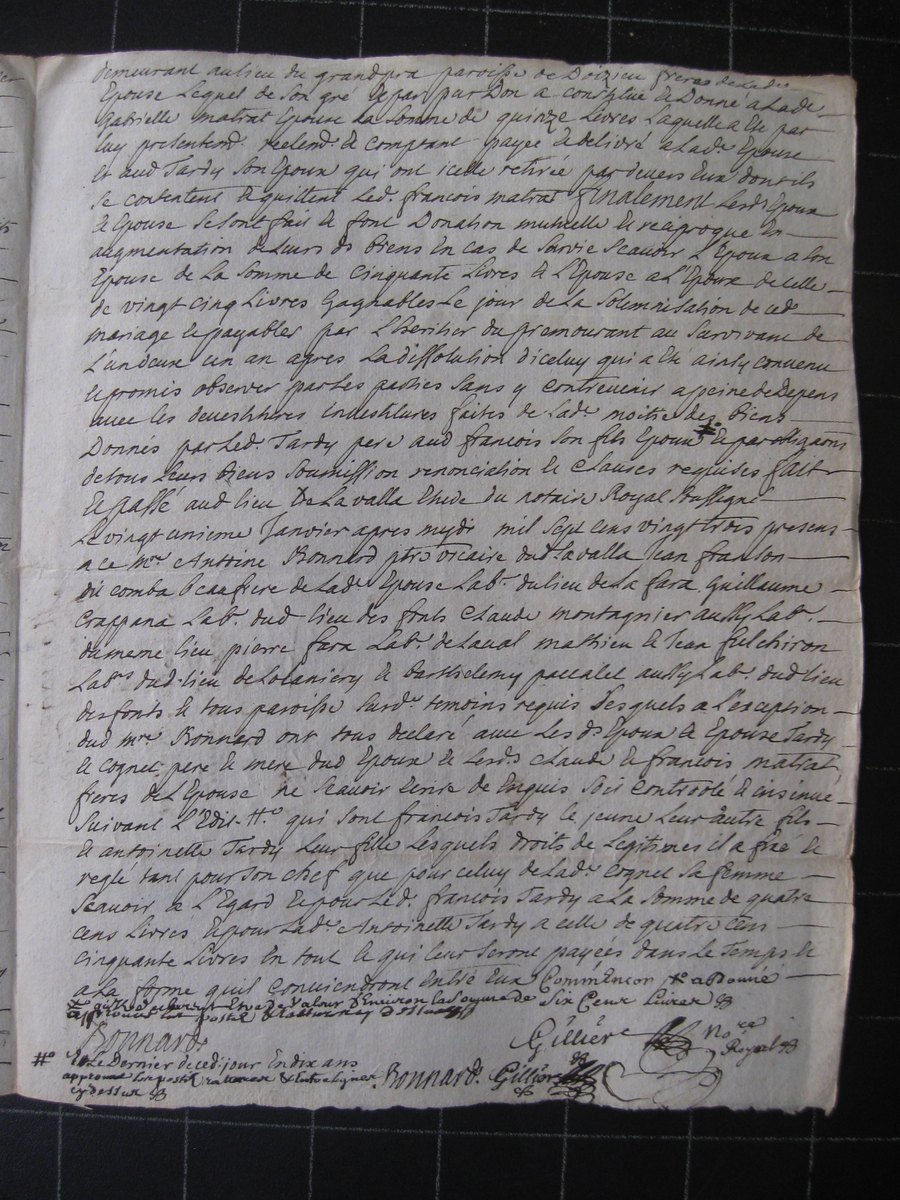 demeurant au lieu du grandpra paroisse de Doizieu freres de lad.e
Epouse Lequel de Son gré & par pur Don a constitué & Donné a Lad.e
Gabrielle matrat Epouse La Somme de quinze Livres Laquelle a Ete par
luy presentem.t reelem.t & comptant payée & delivré a Lad.e Epouse
& aud Tardy Son Epoux qui ont icelle retirée par devers Eux dont ils
Se contentent & quittent Led. francois matrat finalement Lesd.s Epoux
& Epouse Se Sont fait & font Donation mutuelle & reciproque En
augmentation de Leurs ds Biens En cas de Survie Scavoir L'Epoux a Son
Epouse de La Somme de Cinquante Livres & L'Epouse a L'Epoux de celle
de vingt cinq Livres Gagnables Le jour de La Solemnisation de ced.
mariage & payables par L'heritier du premourant au Survivant de
L'un deux un an apres La dissolution d'iceluy qui a Ete ainsy convenu
& promis observer par Les parties Sans y Contrevenir a peine de Depens
avec les devestitures Investitures faites de Lad.e moitie des Biens
Donnés par Led. Tardy pere aud francois Son fils Epoux & par obligaons
de tous Leurs Biens Soumission renonciation & Clauses requises fait
& passé aud lieu de Lavalla Etude du notaire Royal Soussigné
Le vingt unieme Janvier apres mydy mil Sept cens vingt trois presens
a ce m.re Antoine Bonnard ptre vicaire dud. Lavalla Jean franson
dit comba beaufrere de Lad.e Epouse Lab.r du lieu de La fara Guillaume
Crappana Lab.r dud lieu des fonts Claude montagnier aussy Lab.r
du meme lieu pierre fara Lab.r de Laval mathieu & Jean fulchiron
Lab.rs dud. lieu de & Barthelemy pascalet aussy Lab.r dud. lieu
des fonts & tous paroisse Susd.e temoins requis Desquels a L'exception
dud m.re Bonnard ont tous declaré avec Les d.s Epoux & Epouse Tardy
& Cognet pere & mere dud Epoux & Lesd.s Claude & francois matrat
freres de L'Epouse ne Scavoir Ecrire de Enquis Soit Controolé & insinué
Suivant L'Edit #.o qui Sont francois Tardy le jeune Leur autre fils
& antoinette Tardy Leur fille Lesquels droits de Legitimes il a fixé &
reglé tant pour Son chef que pour celuy de Lad.e Cognet Sa femme
Scavoir a L'Egard & pour Led. francois Tardy a La Somme de quatre
cens Livres & pour Lad.e Antoinette Tardy a celle de quatre cens
Cinquante Livres En tout & qui leur Seront payées dans Le Temps &
a La forme quil Conviendront Entre Eux Commencon a Donné
de Valour D'Environ la Somme de Six Cens Livres
Bonnard. Gillier No.re Royal
#.o & Le Dernier deced. jour En dix ans
approuvé Les postil. & Entre lignes Bonnard. Gillier
cy dessus